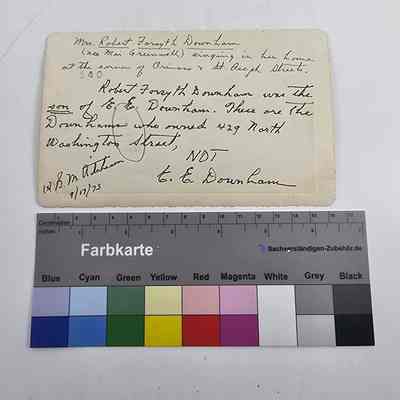 Mrs. Robert Forsyth Downham
(nee Mai Greenwell) singing in her home
at the corner of Prince & St Asaph Streets.
500
Robert Forsyth Downham was the
son of E. E. Downham. These are the
Downhams who owned 429 North
Washington Street,
NOT
E. E. Downham
9/17/73
Centimeter
Inches
Farbkarte
Sachverständigen-Zubehör.de
Blue Cyan Green Yellow Red Magenta White Grey Black